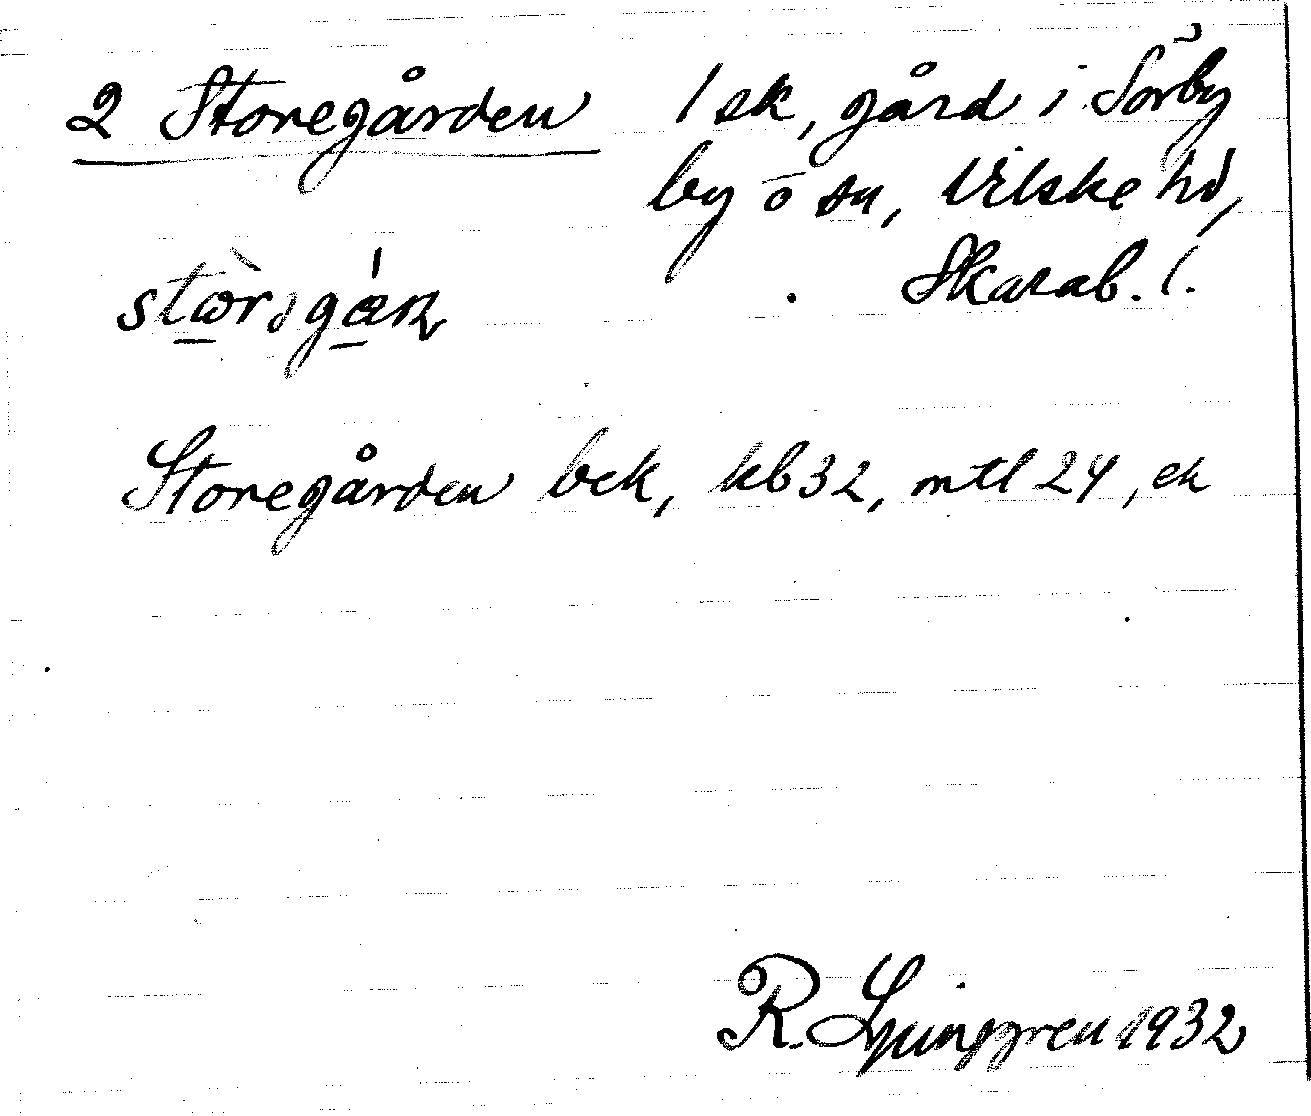 2 Storegården 1 sk, gård i Sörby
by o sn, Vilske hd,
Skarab. l.
Storegården bek, kb 32, mtl 24, ek
R. Ljunggren 1932